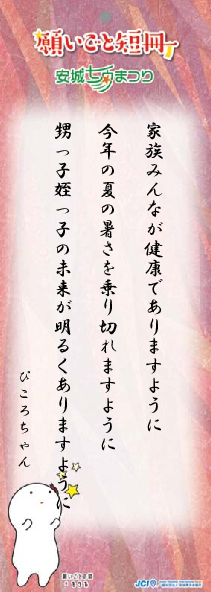 願いごと短冊
安城七夕まつり
家族みんなが健康でありますように
今年の夏の暑さを乗り切れますように
甥っ子姪っ子の未来が明るくありますように
ぴころちゃん
願いごと短冊
JCI